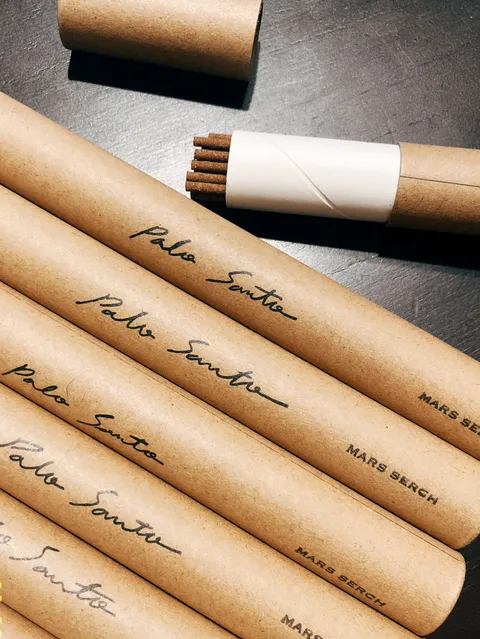 Palo Santo
MARS SE
Palo Santo
MARS SERCH
Palo Santo
MARS SERCH
Palo Santo
MARS
Santo